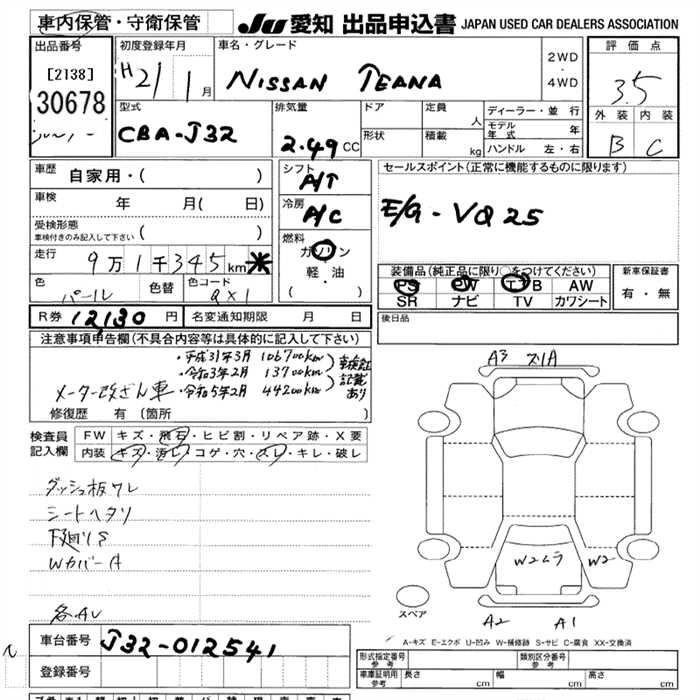 車内保管・守衛保管
JU 愛知 出品申込書 JAPAN USED CAR DEALERS ASSOCIATION
出品番号
[2138]
30678
初度登録年月
H21 1月
車名・グレード
NISSAN TEANA
2WD
・
4WD
評価点
3.5
外装 内装
B C
型式
CBA-J32
排気量
2.49CC
ドア
形状
定員 人
積載 kg
ディーラー・並行
モデル年式 年
ハンドル 左・右
車歴
自家用・( )
車検 年 月( 日)
受検形態
車検付きのみ記入して下さい ( )
走行
9万1千345km
色 パール
色替
色コード QX1
シフト
A/T
冷房
A/C
燃料
ガソリン
軽・油
( )
セールスポイント(正常に機能するものに限ります)
E/G - VQ25
装備品(純正品に限り○をつけてください)
PS PW エアB AW
SR ナビ TV カワシート
新車保証書
有・無
R券 12,130円
名変通知期限 月 日
後日品
注意事項申告欄(不具合内容等は具体的に記入して下さい)
・平成31年3月 106700km
・令和3年2月 13700km
・令和5年2月 44200km
車検証
記載
あり
メーター改ざん車
修復歴 有 (箇所 )
検査員
記入欄
FW キズ・飛石・ヒビ割・リペア跡・X要
内装 キズ・汚レ・コゲ・穴・スレ・キレ・破レ
ダッシュ板ワレ
シートヘタリ
下廻りS
WカバーA
各AU
A3
W2ムラ
W2
A2 A1
スペア
A-キズ E-エクボ U-凹み W-補修跡 S-サビ C-腐食 XX-交換済
車台番号
J32-012541
登録番号
形式指定番号
参考
類別区分番号
参考
車庫証明用
参考
長さ cm 幅 cm 高さ cm